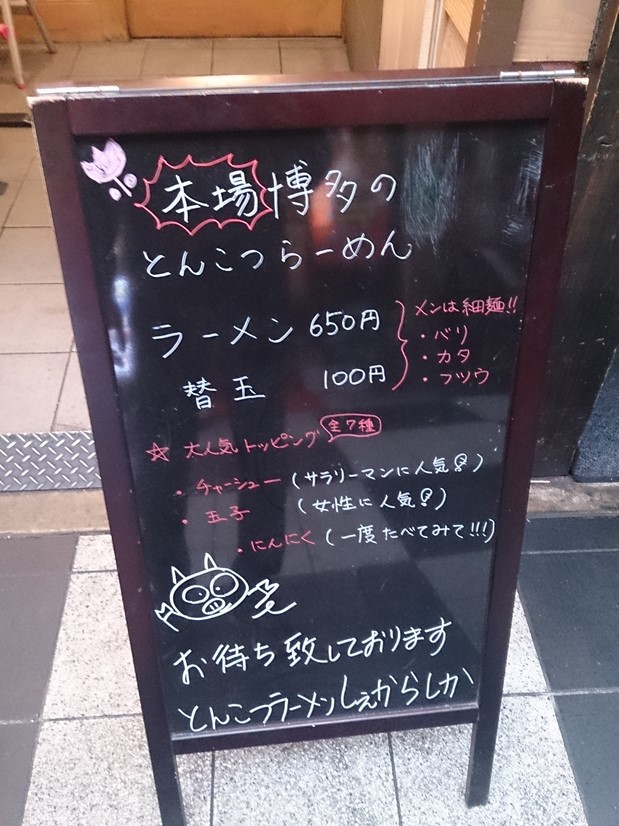 本場博多の
とんこつらーめん
ラーメン 650円
替玉 100円
メンは細麺!!
・バリ
・カタ
・フツウ
☆ 大人気トッピング 全7種
・チャーシュー (サラリーマンに人気!!)
・玉子 (女性に人気!!)
・にんにく (一度たべてみて!!!)
お待ち致しております
とんこつラーメンしぇからしか